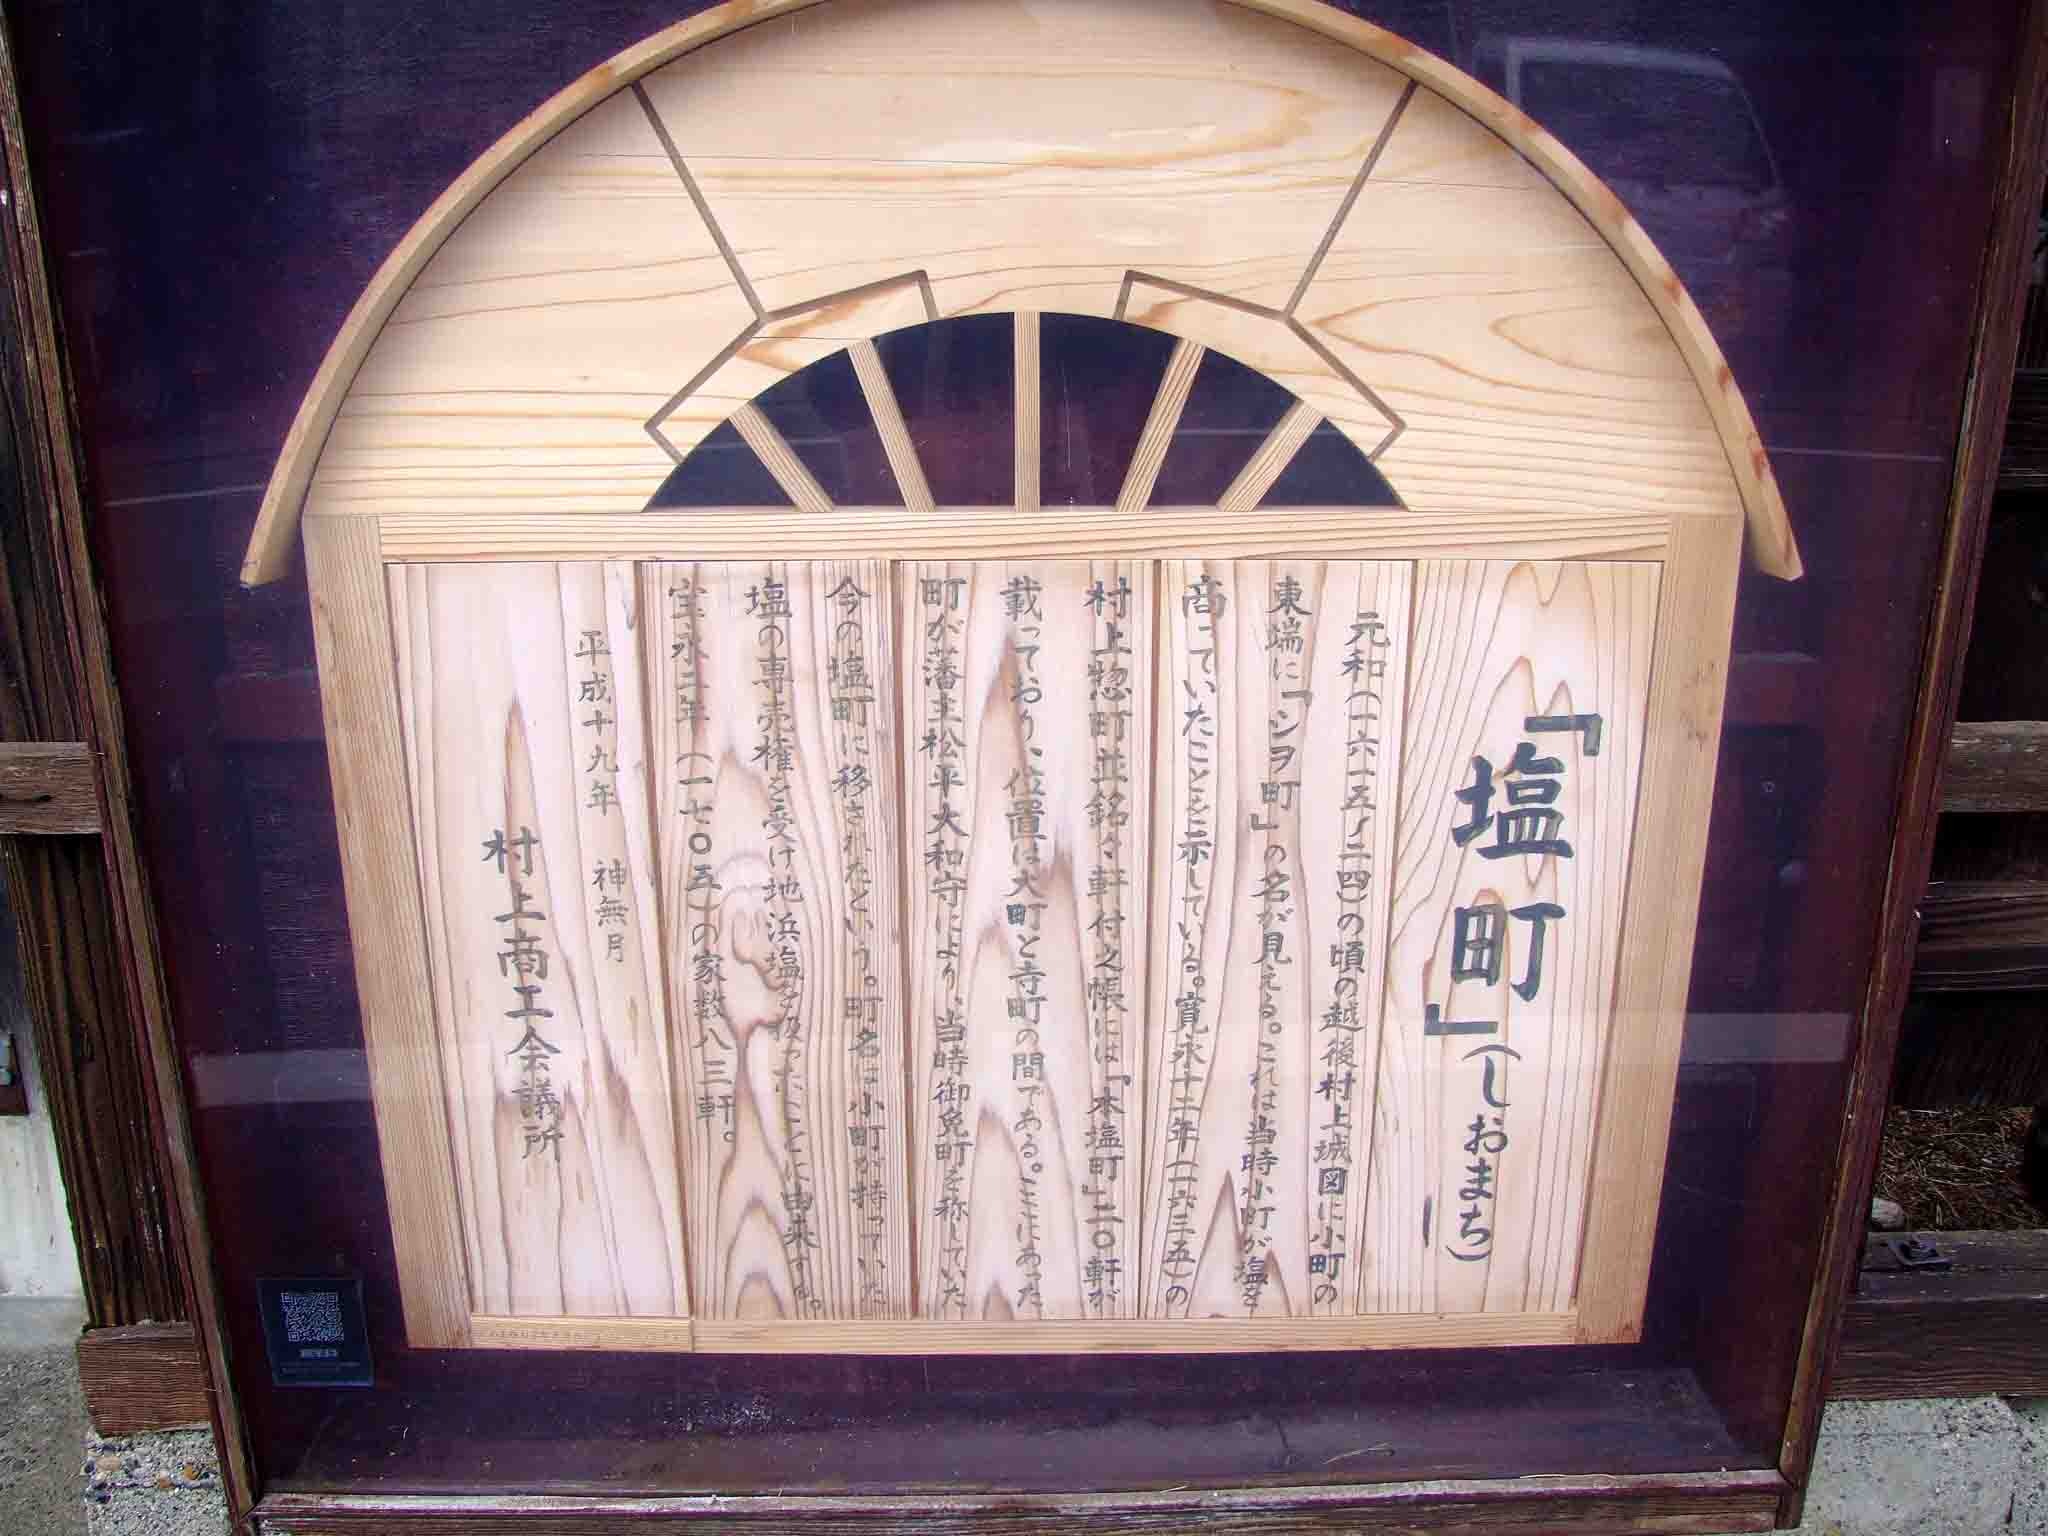 「塩町」(しおまち)
元和(一六一五〜二四)の頃の越後村上城図に小町の
東端に「シヲ町」の名が見える。これは当時小町が塩を
商っていたことを示している。寛永十二年(一六三五)の
村上惣町並銘々軒付之帳には「本塩町」二〇軒が
載っており、位置は大町と寺町の間である。ここにあった
町が藩主松平大和守により、当時御免町を称していた
今の塩町に移されたという。町名は小町が持っていた
塩の専売権を受け地浜塩を扱ったことに由来する。
宝永二年(一七〇五)の家数八三軒。
平成十九年 神無月
村上商工会議所